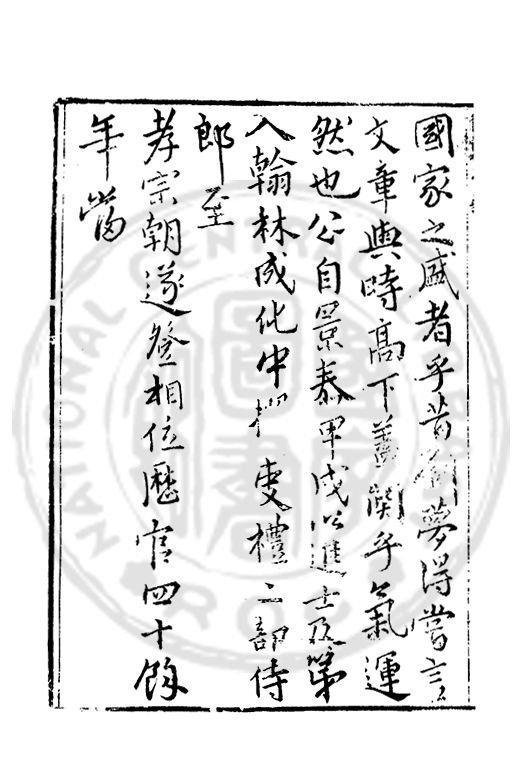 國家之盛者乎昔劉夢得嘗言
文章與時高下蓋關乎氣運
然也公自景泰甲戌以進士及第
入翰林成化中擢吏禮二部侍
郎至
孝宗朝遂登相位歷官四十餘
年當
NATIONAL CENTRAL